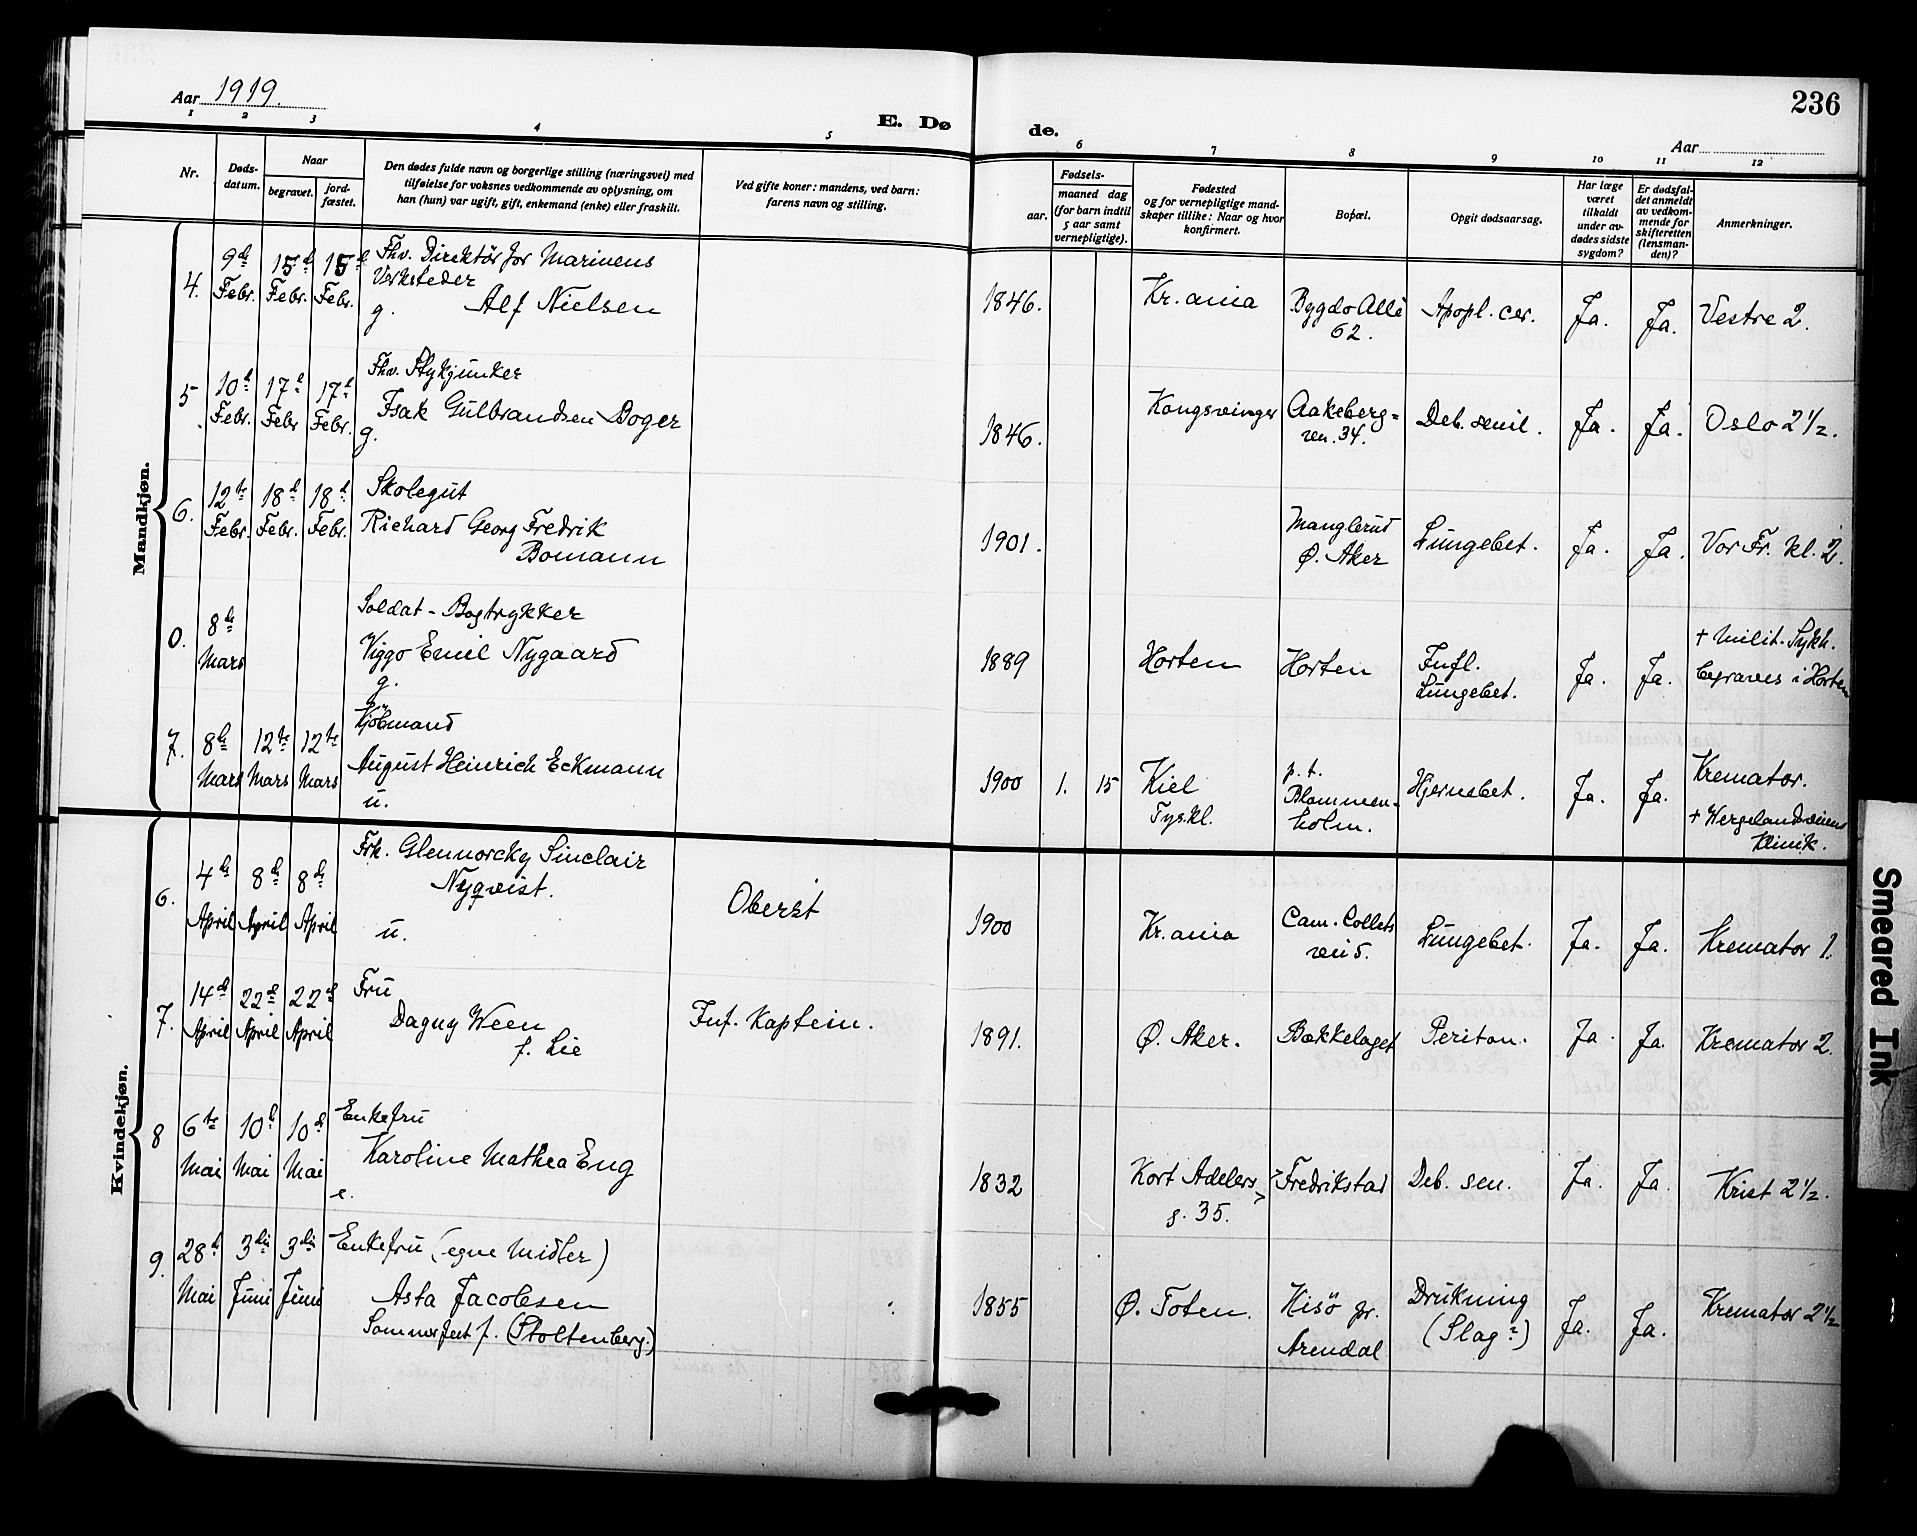 Aar 1919.
E. Døde.
236
Aar
1 2 3 4 5 6 7 8 9 10 11 12
Nr.
Døds-
datum.
Naar
begravet.
jord-
fæstet.
Den dødes fulde navn og borgerlige stilling (næringsvei) med
tilføielse for voksnes vedkommende av oplysning, om
han (hun) var ugift, gift, enkemand (enke) eller fraskilt.
Ved gifte koner: mandens, ved barn:
farens navn og stilling.
Fødsels-
aar.
maaned dag
(for barn indtil
5 aar samt
vernepligtige).
Fødested
og for vernepligtige mand-
skaper tillike: Naar og hvor
konfirmert.
Bopæl.
Opgit dødsaarsag.
Har læge
været
tilkaldt
under av-
dødes sidste
sygdom?
Er dødsfal-
det anmeldt
av vedkom-
mende for
skifteretten
(lensman-
den)?
Anmerkninger.
Mandkjøn.
4. 9de Febr. 15d Febr. 15d Febr.
Fhv. Direktør for Marinens
Verksteder
g. Alf Nielsen
1846. Kr.ania Bygdo Allé 62. Apopl. cer. Ja. Ja. Vestre 2.
5 10d Febr. 17d Febr 17d Febr.
Fhv. Stykjunker
Isak Gulbrandsen Boger
g.
1846. Kongsvinger Aakeberg=
ven. 34. Deb. senil. Ja. Ja. Oslo 2 1/2.
6. 12te Febr. 18d Febr. 18d Febr.
Skolegut
Richard Georg Fredrik
Bomann
1901. Manglerud
Ø. Aker Lungebet. Ja. Ja. Vor Fr. kl. 2.
0. 8de Mars
Soldat - Bogtrykker
Viggo Emil Nygaard
g.
1889 Horten Horten Infl.
Lungebet. Ja. Ja. + Milit. Sykh.
begraves i Horten
7. 8de Mars 12te Mars 12te Mars
Kjøbmand
August Heinrich Eckmann
u.
1900 1. 15 Kiel
Tyskl. p. t.
Blommen-
holm. Hjernebet. Ja. Ja. Kremator.
+ Wergelandsveiens
Klinik.
Kvindekjøn.
6. 4de April 8de April 8de April
Frk. Glennorcky Sinclair
Nyqvist.
u.
Oberst
1900 Kr.ania Cam. Collets
vei 5. Lungebet. Ja. Ja. Kremator 1.
7. 14d April 22d April 22d April
Fru
Dagny Ween
f. Lie
Inf. Kaptein.
1891. Ø. Aker. Bækkelaget Periton. Ja. Ja. Kremator 2.
8 6te Mai 10d Mai 10d Mai
Enkefru
Karoline Mathea Eng
e.
1832 Kort Adelers
g. 35. Fredrikstad Deb. sen. Ja. Ja. Krist 2 1/2.
9. 28d Mai 3die Juni 3die Juni
Enkefru (egne Midler)
Asta Jacobsen
Sommerfeet f. (Stoltenberg.)
1855 Ø. Toten. Hisö pr.
Arendal Drukning
(Slag?) Ja. Ja. Kremator 2 1/2
Smeared Ink